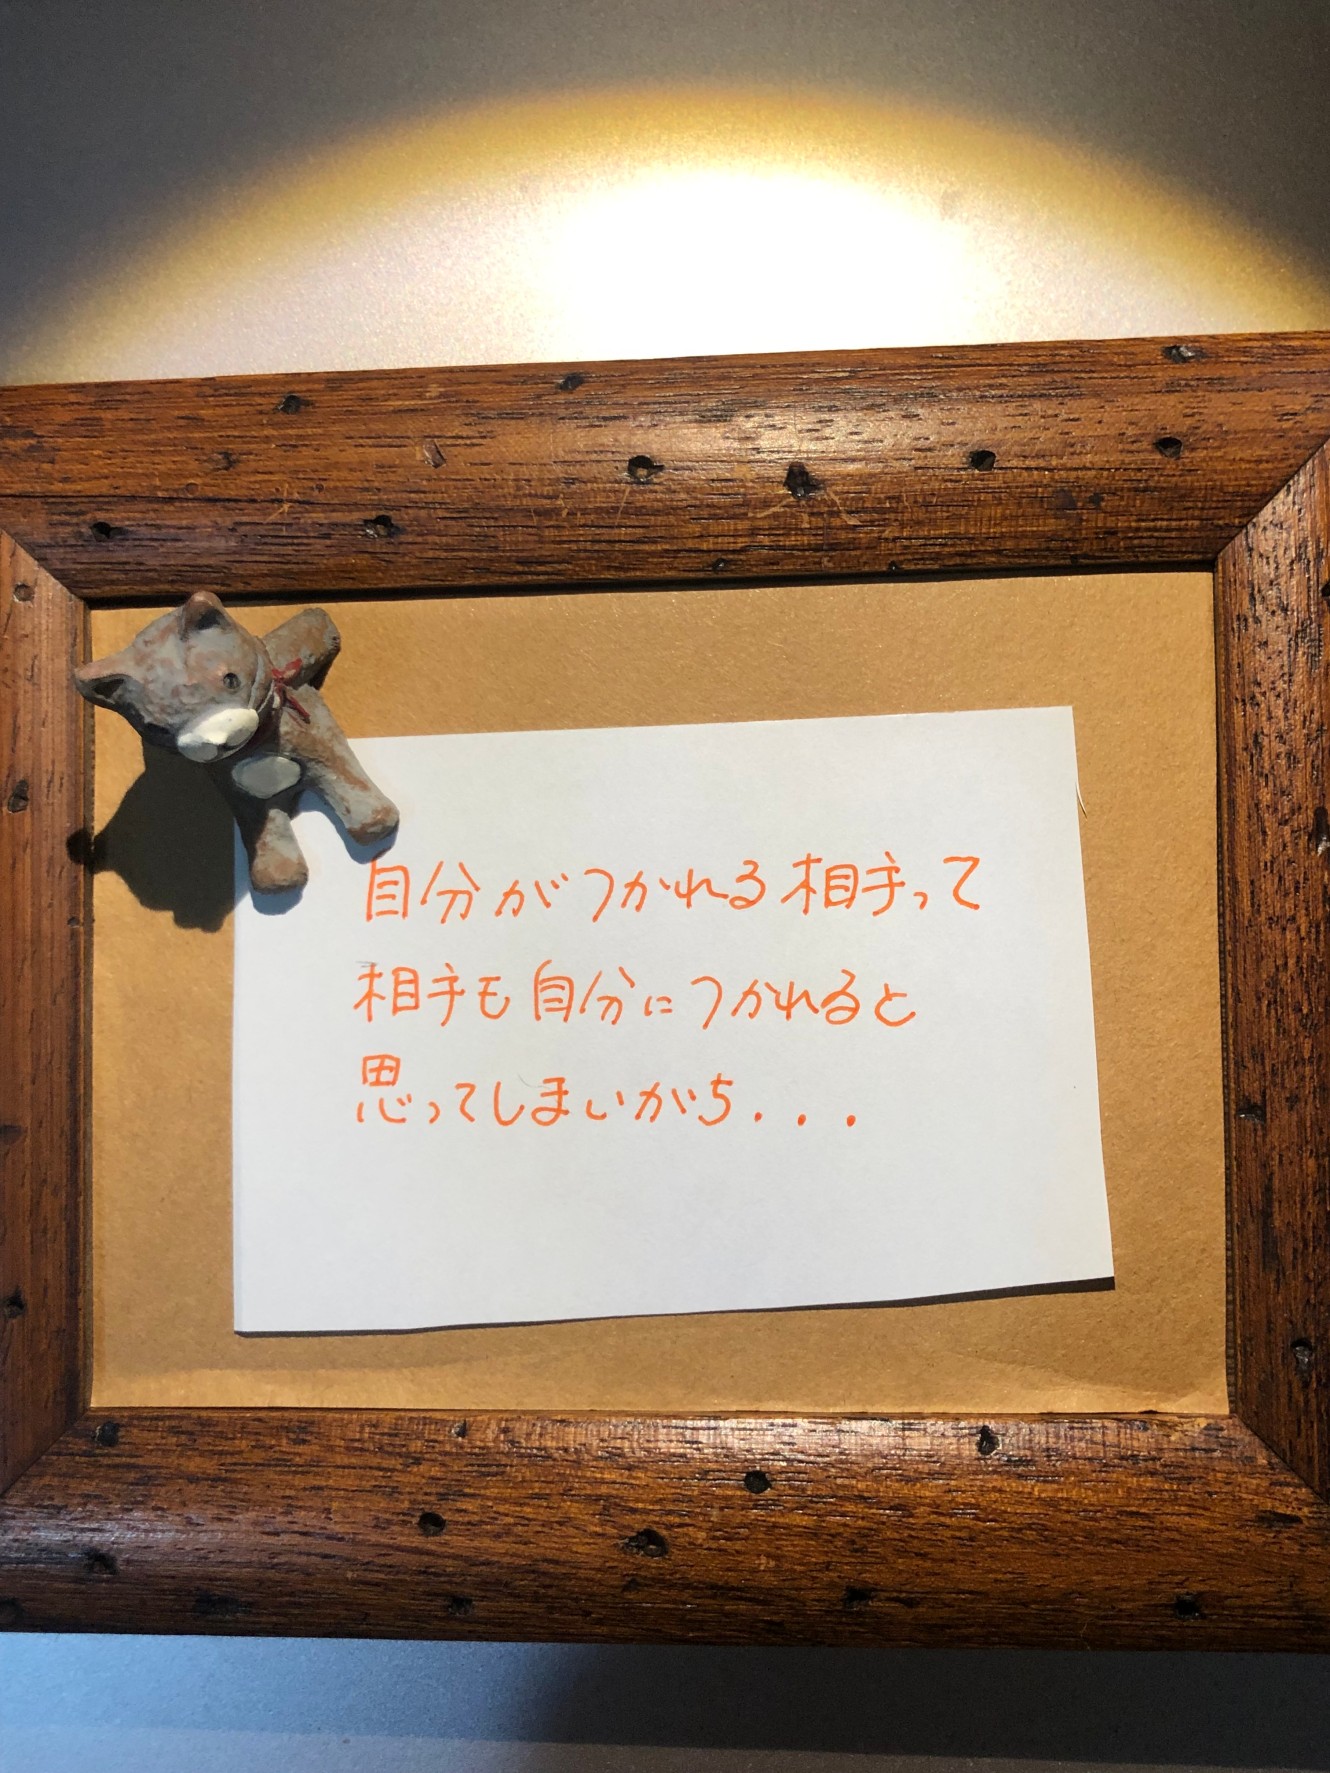 自分がつかれる相手って
相手も自分につかれると
思ってしまいがち...